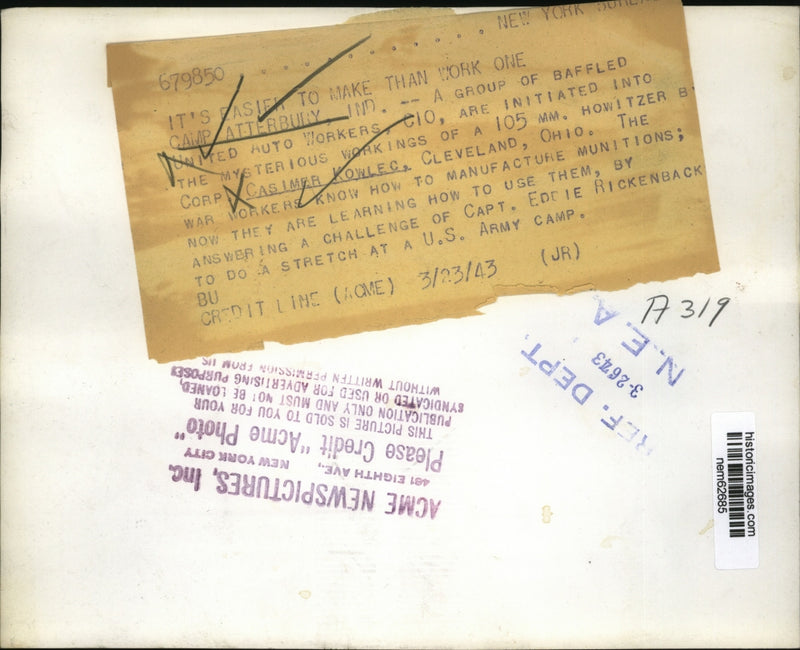 NEW YORK BUREAU
679850
IT'S EASIER TO MAKE THAN WORK ONE
CAMP ATTERBURY, IND. -- A GROUP OF BAFFLED
UNITED AUTO WORKERS, CIO, ARE INITIATED INTO
THE MYSTERIOUS WORKINGS OF A 105 MM. HOWITZER B
CORP. CASIMER KOWLEC, CLEVELAND, OHIO. THE
WAR WORKERS KNOW HOW TO MANUFACTURE MUNITIONS;
NOW THEY ARE LEARNING HOW TO USE THEM, BY
ANSWERING A CHALLENGE OF CAPT. EDDIE RICKENBACK
TO DO A STRETCH AT A U.S. ARMY CAMP.
BU
CREDIT LINE (ACME) 3/23/43 (JR)
A 319
REF. DEPT.
3-26-43
N.E.A.
ACME NEWSPICTURES, Inc.
461 EIGHTH AVE., NEW YORK CITY
Please Credit "Acme Photo"
THIS PICTURE IS SOLD TO YOU FOR YOUR
PUBLICATION ONLY AND MUST NOT BE LOANED,
SYNDICATED OR USED FOR ADVERTISING PURPOSES
WITHOUT WRITTEN PERMISSION FROM US
historicimages.com
nem62685